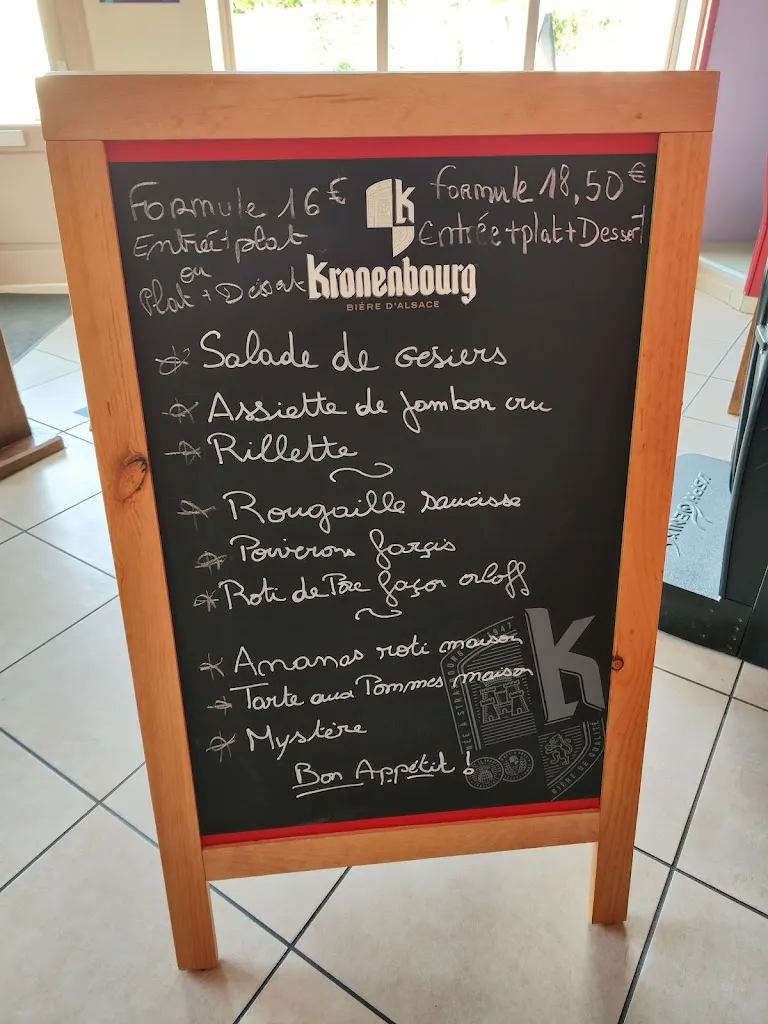 Formule 16€
Entrée+plat
ou
Plat + Dessert
Formule 18,50€
Entrée+plat+Dessert
Kronenbourg
BIÈRE D'ALSACE
Salade de Gesiers
Assiette de Jambon cru
Rillette
Rougaille saucisse
Poiverons farçis
Roti de Porc façon orloff
Ananas roti maison
Tarte aux Pommes maison
Mystère
Bon Appétit !
K
1947
BIÈRE DE QUALITÉ